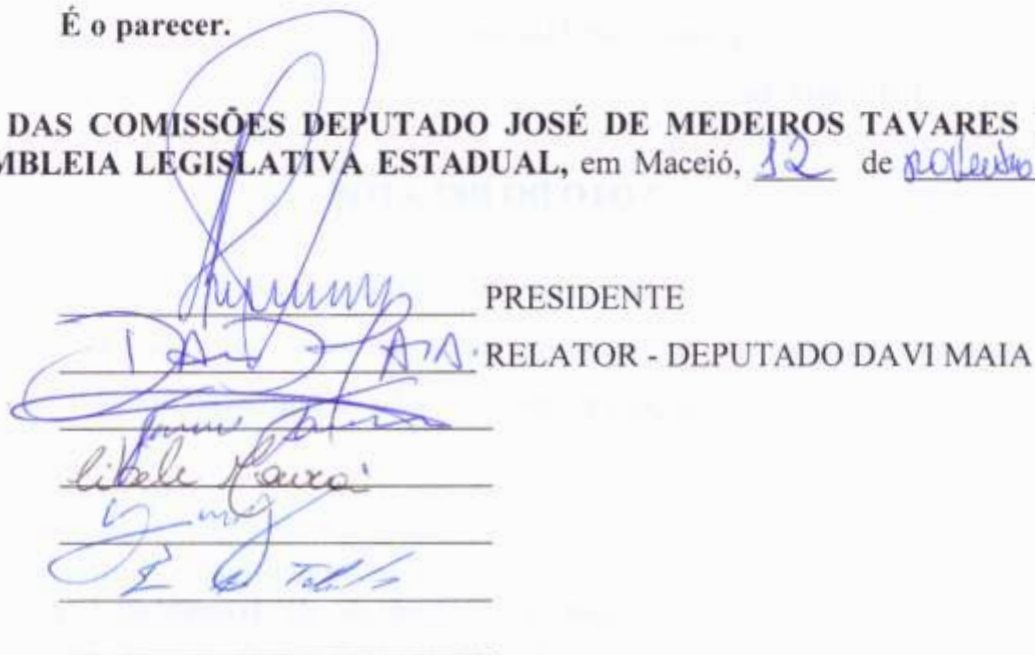 É o parecer.
DAS COMISSÕES DEPUTADO JOSÉ DE MEDEIROS TAVARES
MBLEIA LEGISLATIVA ESTADUAL, em Maceió, 12 de novembro
PRESIDENTE
DAVI MAIA RELATOR - DEPUTADO DAVI MAIA
Cibele Moura